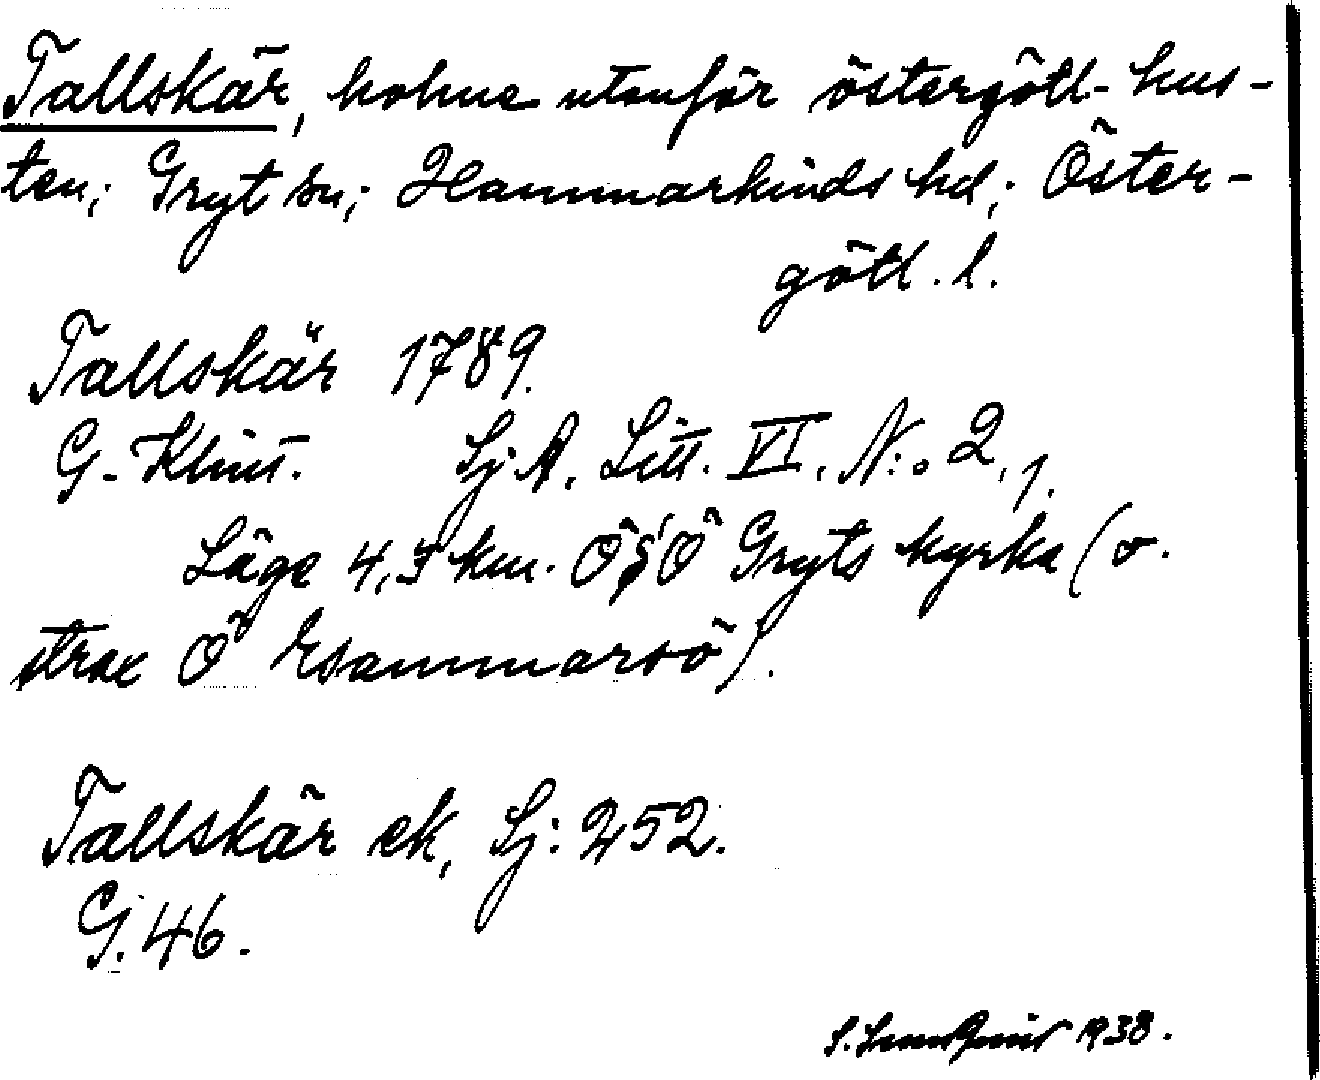 Tallskär, holme utanför östergötl. kus-
ten; Gryt sn; Hammarkinds hd; Öster-
götl. l.
Tallskär 1789.
G. Klint. Sj. A. Litt. VI. N:o 2, 1.
Läge 4,3 km. ÖSÖ Gryts kyrka (o.
strax Ö Esammarsö).
Tallskär ek, Sj: 252.
G. 46.
S. 1938.